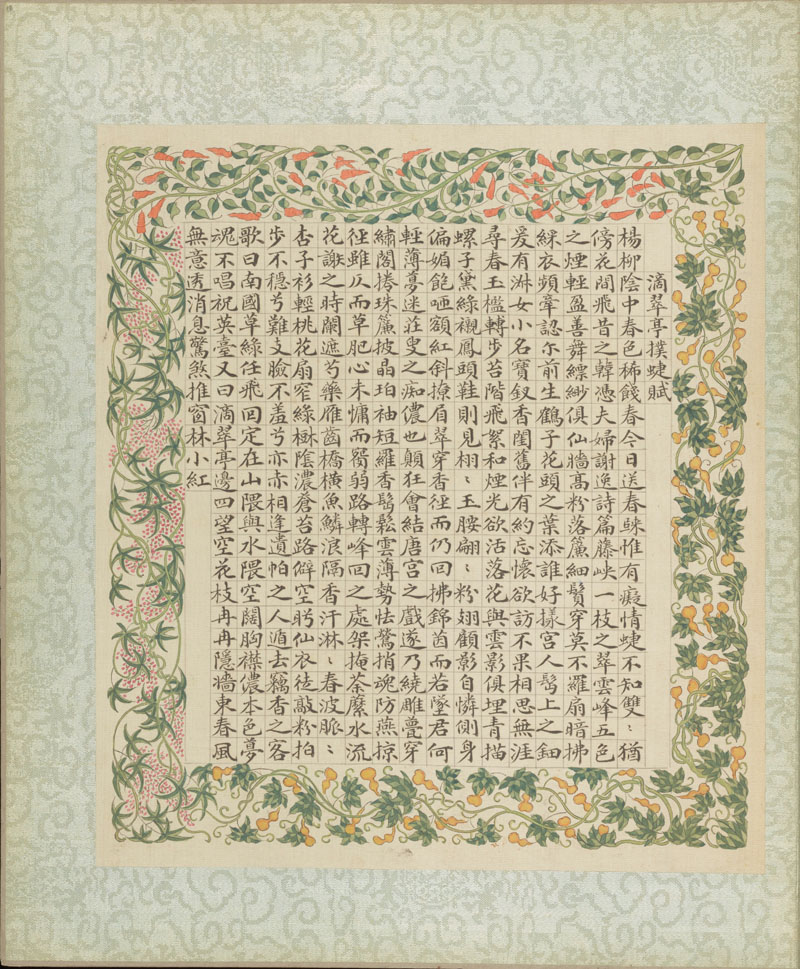 滴翠亭撲蜨賦
楊柳陰中春色稀餞春今日送春歸惟有癡情蜨不知雙〻猶
傍花間飛昔之韓憑夫婦謝逸詩篇藤峽一枝之翠雲峰五色
之煙輕盈善舞縹緲俱仙牆髙粉落簾細鬢穿莫不羅扇暗拂
綵衣頻牽認尔前生鶴子花頭之葉添誰好㨾宮人髩上之鈿
爰有淋女小名寶釵香閨舊伴有約忘懷欲訪不果相思無涯
尋春玉檻轉步苔階飛絮和煙光欲活落花與雲影俱埋青描
螺子黛綠襯鳳頭鞋則見栩〻玉腰翩〻粉翅顧影自憐側身
偏媚飽咂額紅斜撩眉翠穿香徑而仍回拂錦茵而若墜君何
輕薄夢迷莊叟之痴儂也顛狂會結唐宮之戲遂乃繞雕甍穿
繡閣捲珠簾披晶珀袖短羅香髩鬆雲薄勢怯驚捎魂防燕掠
徑雖仄而草肥心未慵而罥弱路轉峰回之處架掩荼蘼水流
花謝之時闌遮芍藥雁齒橋橫魚鱗浪隔香汗淋〻春波脈〻
杏子衫輕桃花扇窄綠樹陰濃蒼苔路僻空眄仙衣徒敲粉拍
步不穩兮難支臉不羞兮亦赤相逢遺帕之人遁去竊香之客
歌曰南國草綠任飛回定在山隈與水隈空闊胸襟儂本色夢
魂不唱祝英臺又曰滴翠亭邊四望空花枝冉冉隱牆東春風
無意透消息驚煞推窗林小紅